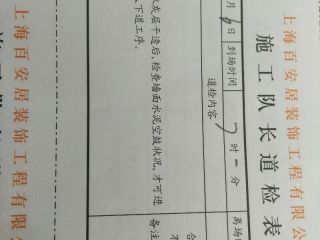 上海百安居装饰工程有限公
施工队长道检表
月6日 到场时间 7时一分 离场
道检内容
灰层干透后,检查墙面水泥空鼓状况,才可进
下道工序。
合
不
备注
上海百安居装饰工程有限公